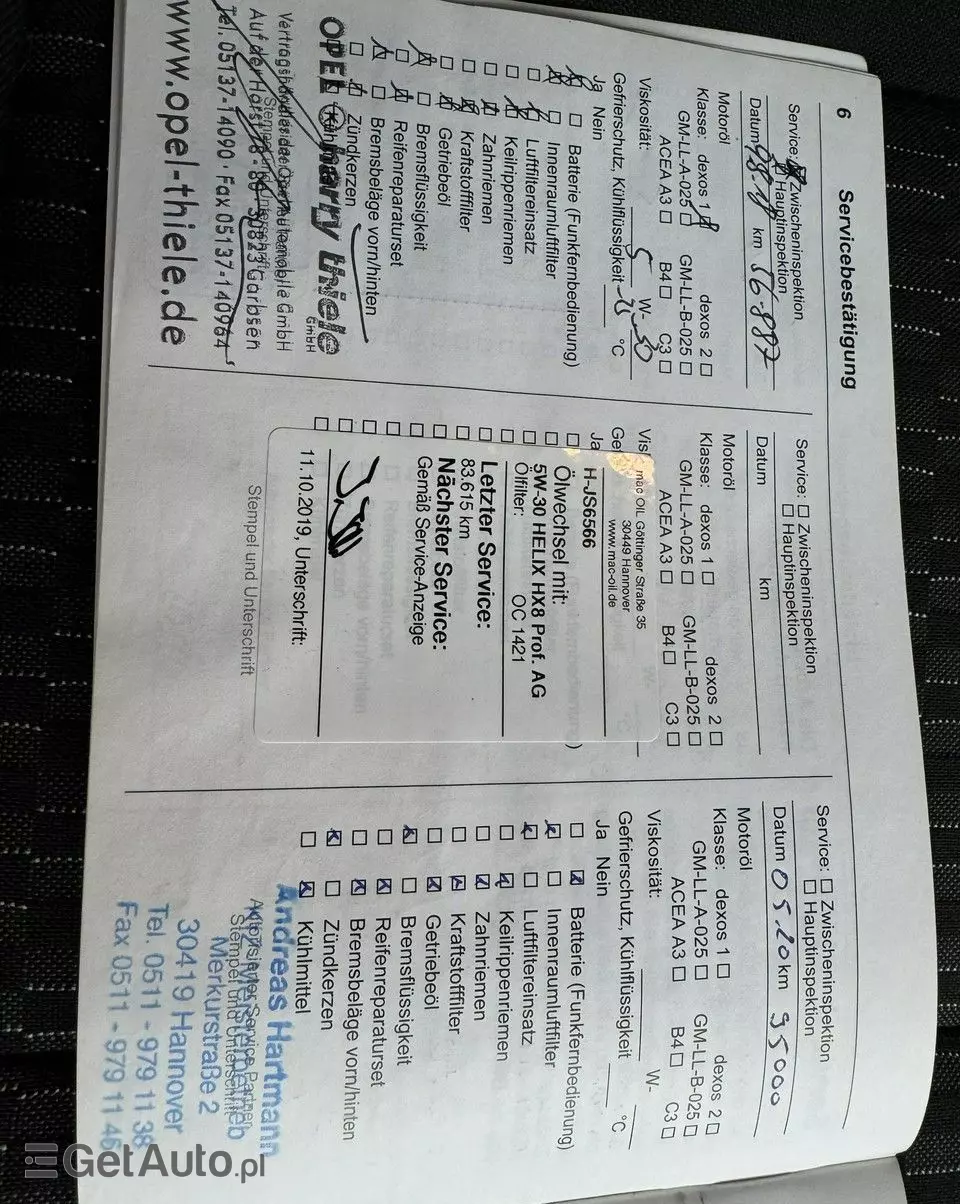 6
Servicebestätigung
Service: Zwischeninspektion
Hauptinspektion
Datum km 56.887
Motoröl
Klasse: dexos 1 dexos 2
GM-LL-A-025 GM-LL-B-025
ACEA A3 B4 C3
Viskosität: 5 W- 30
Gefrierschutz, Kühlflüssigkeit °C
Ja Nein
Batterie (Funkfernbedienung)
Innenraumluftfilter
Luftfiltereinsatz
Keilrippenriemen
Zahnriemen
Kraftstofffilter
Getriebeöl
Bremsflüssigkeit
Reifenreparaturset
Bremsbeläge vorn/hinten
Zündkerzen
Kühlmittel
OPEL harry thiele
GmbH
Vertragshändler der Opel Automobile GmbH
Auf der Horst 78-80 30823 Garbsen
Tel. 05137-14090 · Fax 05137-140964
www.opel-thiele.de
Stempel und Unterschrift
Service: Zwischeninspektion
Hauptinspektion
Datum km
Motoröl
Klasse: dexos 1 dexos 2
GM-LL-A-025 GM-LL-B-025
ACEA A3 B4 C3
Vis
Ge
Ja
mac OIL Göttinger Straße 35
30449 Hannover
www.mac-oil.de
H-JS6566
Ölwechsel mit:
5W-30 HELIX HX8 Prof. AG
Ölfilter: OC 1421
Letzter Service:
83.615 km
Nächster Service:
Gemäß Service-Anzeige
11.10.2019, Unterschrift:
Stempel und Unterschrift
Service: Zwischeninspektion
Hauptinspektion
Datum 05.20 km 95000
Motoröl
Klasse: dexos 1 dexos 2
GM-LL-A-025 GM-LL-B-025
ACEA A3 B4 C3
Viskosität: W-
Gefrierschutz, Kühlflüssigkeit °C
Ja Nein
Batterie (Funkfernbedienung)
Innenraumluftfilter
Luftfiltereinsatz
Keilrippenriemen
Zahnriemen
Kraftstofffilter
Getriebeöl
Bremsflüssigkeit
Reifenreparaturset
Bremsbeläge vorn/hinten
Zündkerzen
Kühlmittel
Andreas Hartmann
Autorisierter Service Partner
Stempel und Unterschrift
Merkurstraße 2
30419 Hannover
Tel. 0511 - 979 11 38
Fax 0511 - 979 11 46
GetAuto.pl